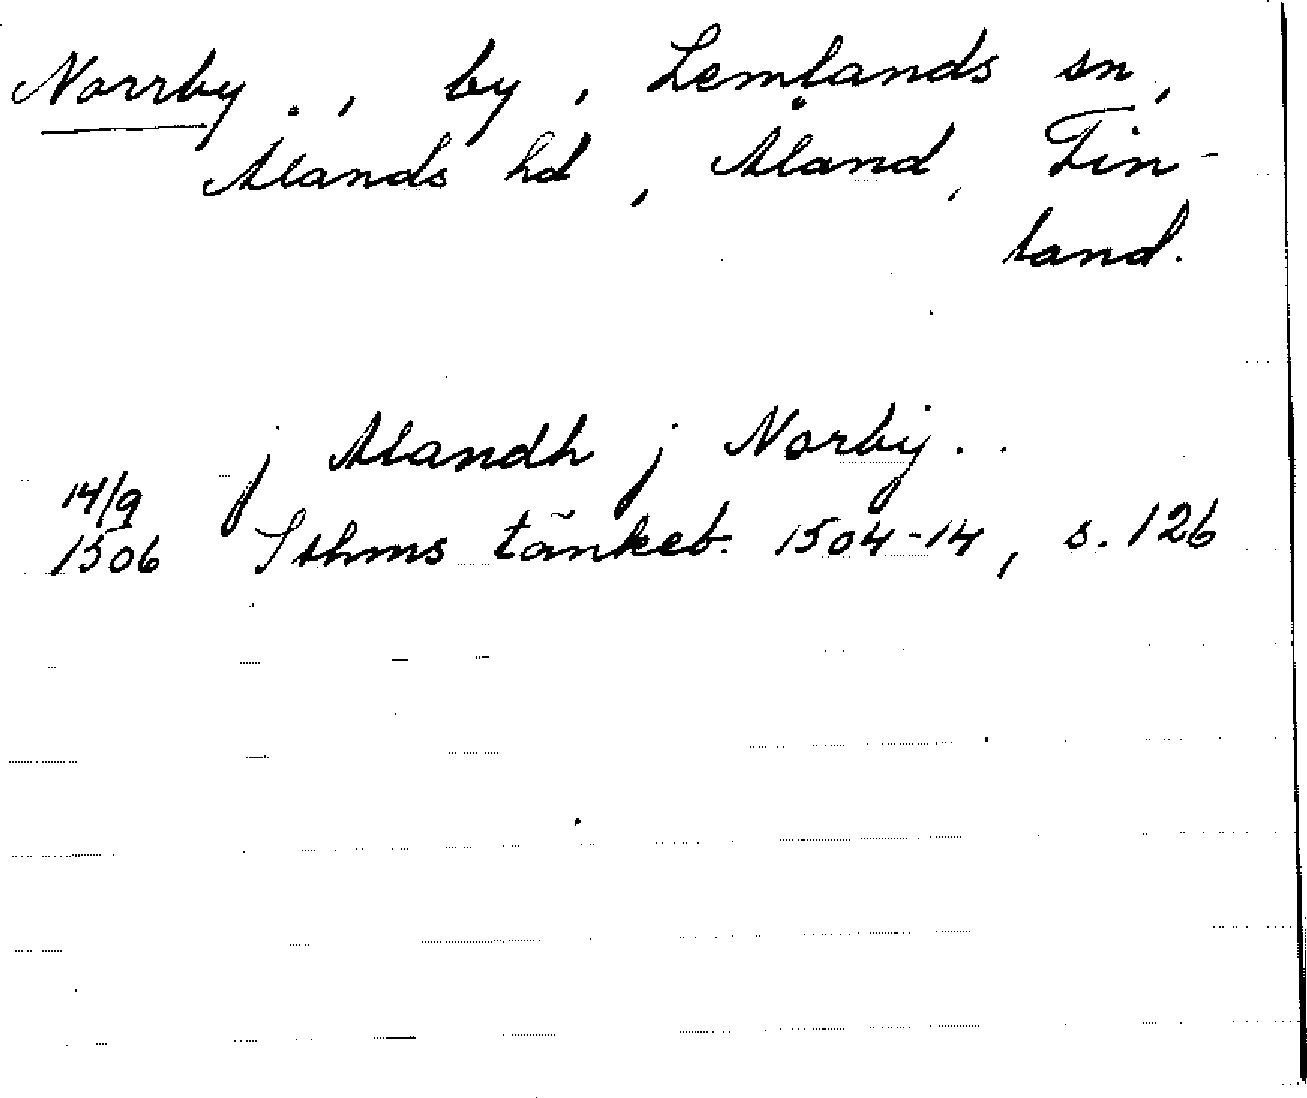 Norrby., by, Lemlands sn,
Ålands hd, Åland, Fin-
land.
j Alandh j Norbij..
14/9
1506 Sthms tänkeb. 1504-14, s. 126